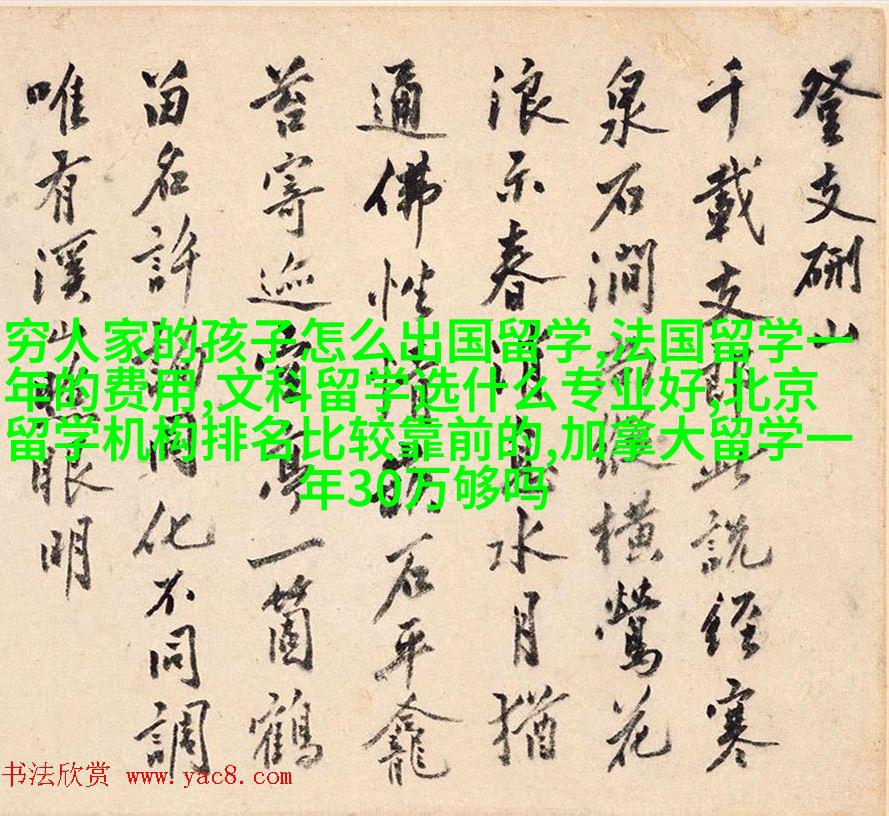 登支硎山
千載支郎此說經寒
泉石澗尚縱橫鶯花
浪示春消息水月猶
通佛性情石平龕
苔寄巡亭一箇鶴
留名許同化不同調
唯有溪山照眼明
穷人家的孩子怎么出国留学,法国留学一
年的费用,文科留学选什么专业好,北京
留学机构排名比较靠前的,加拿大留学一
年30万够吗
书法欣赏 www.yac8.com